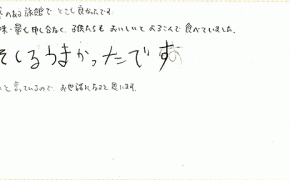 のある旅館で とても良かったです。
味・量も申し分なく、子供たちも おいしいと よろこんで 食べていました。
そしるうまかったです
と言っているので、お世話になると思います。